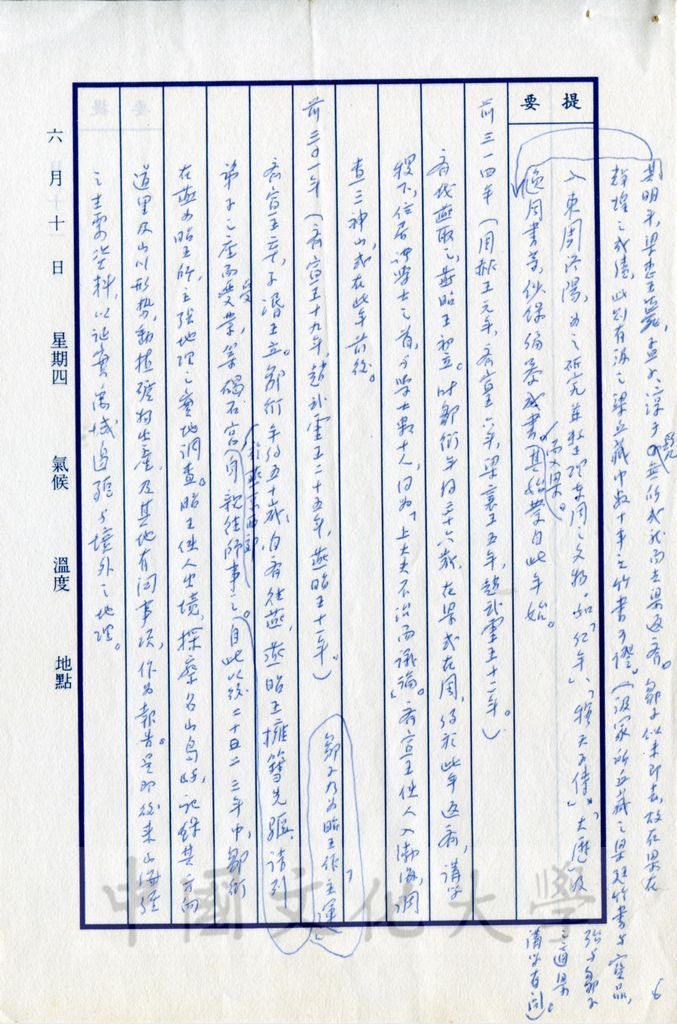 其明年,梁惠王薨,孟子、淳于髡無所成就而去梁返齊。鄒子似未即去,故在梁在
輝煌之成績,此則有汲之梁丘藏中數十車之竹書可僽。(汲冢所丘藏之梁廷竹書與寶品,
入東周洛陽,為之研究並整理東周之文物。如「紀年」、「穆天子傳」、「大歷」及
提要
前三一四年(周赧王元年,齊宣王六年,梁襄王五年,趙武靈王十二年。)
齊伐燕取之,燕昭王初立。時鄒衍年約三十六歲,在梁或在周,約於此年返齊,講學
稷下,位居諸學士之首,與學士數十人,因為「上大夫不治而議論」。齊宣王使人入渤海,調
查三神山,或在此年前後。
前三〇一年(齊宣王十九年,趙武靈王二十五年,燕昭王十一年。)
鄒子乃為昭王作「主運」
齊宣王卒,子湣王立。鄒衍年約五十歲,自齊往燕,燕昭王擁篲先驅,請列
弟子之座而受業,築碣石宮,身親往師事之。自此以後二十日二三年中,鄒衍
在燕為昭王師,主張地理之實地調查。昭王使人出境,探察名山島嶼,記錄其方向
道里及山川形勢,動植礦物出產,及其他有關事項,作為報告。是即後來山海經
之主要資料,以証實禹域邊疆與境外之地理。
六月十日 星期四 氣候 溫度 地點
6
中國文化大學